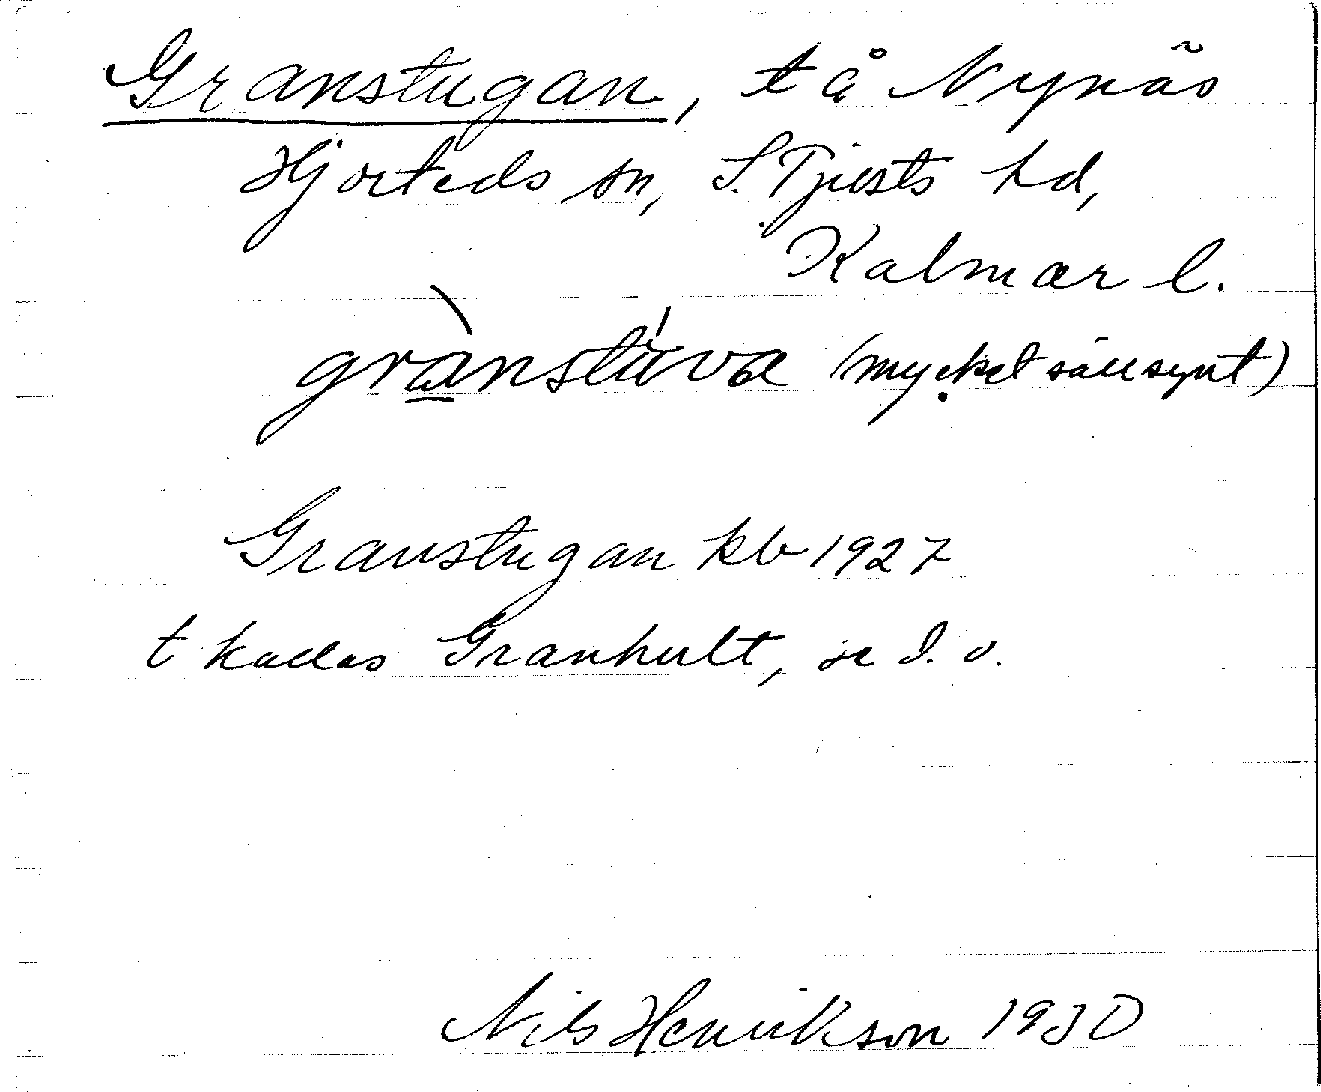 Granstugan, t å Nynäs
Hjorteds sn, S. Tjusts hd,
Kalmar l.
grànstúva (mycket sällsynt)
Granstugan kb 1927
t kallas Granhult, se d. o.
Nils Henrikson 1930